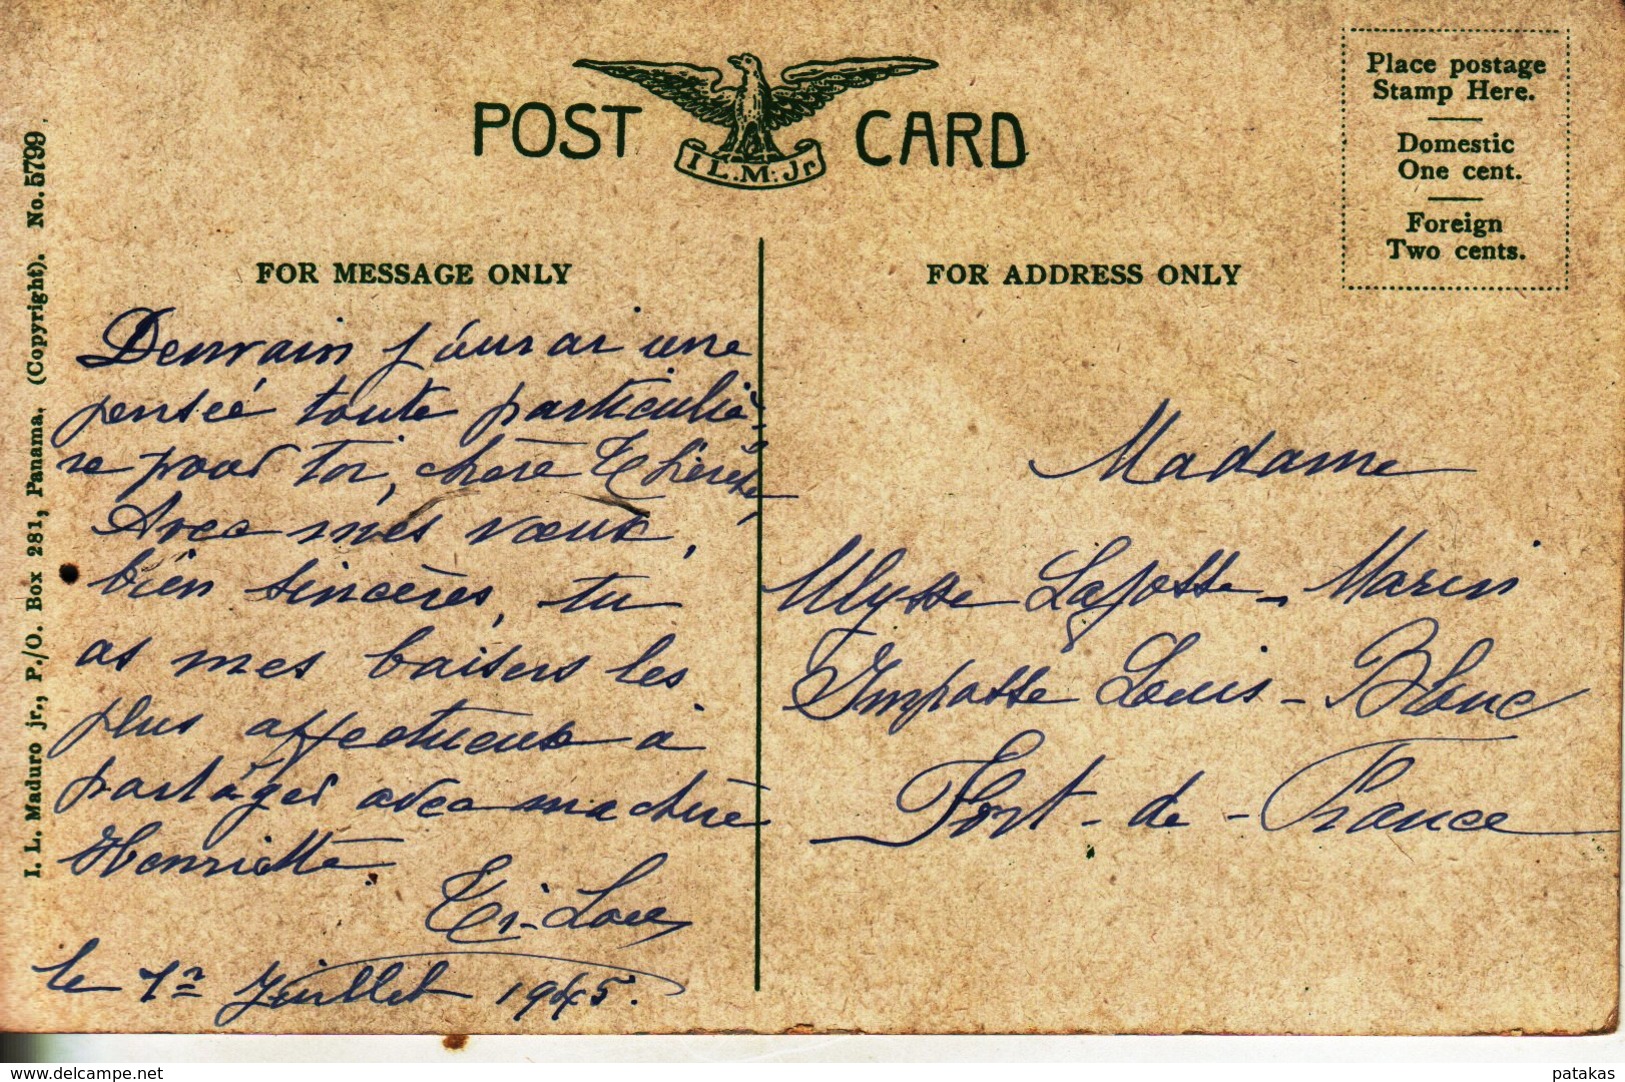 POST CARD
I.L.M. Jr.
Place postage
Stamp Here.
Domestic
One cent.
Foreign
Two cents.
I. L. Maduro jr., P./O. Box 281, Panama. (Copyright). No. 5799.
FOR MESSAGE ONLY
Demain j'aurai une
pensée toute particuliè-
re pour toi, chère Thérèse,
Avec mes vœux,
bien sincères, tu
as mes baisers les
plus affectueux à
partager avec ma chère
Henriette.
Ti-Lou
le 1er Juillet 1945.
FOR ADDRESS ONLY
Madame
Ulysse Lafosse-Marin
Impasse Louis-Blanc
Fort-de-France
delcampe.net
patakas